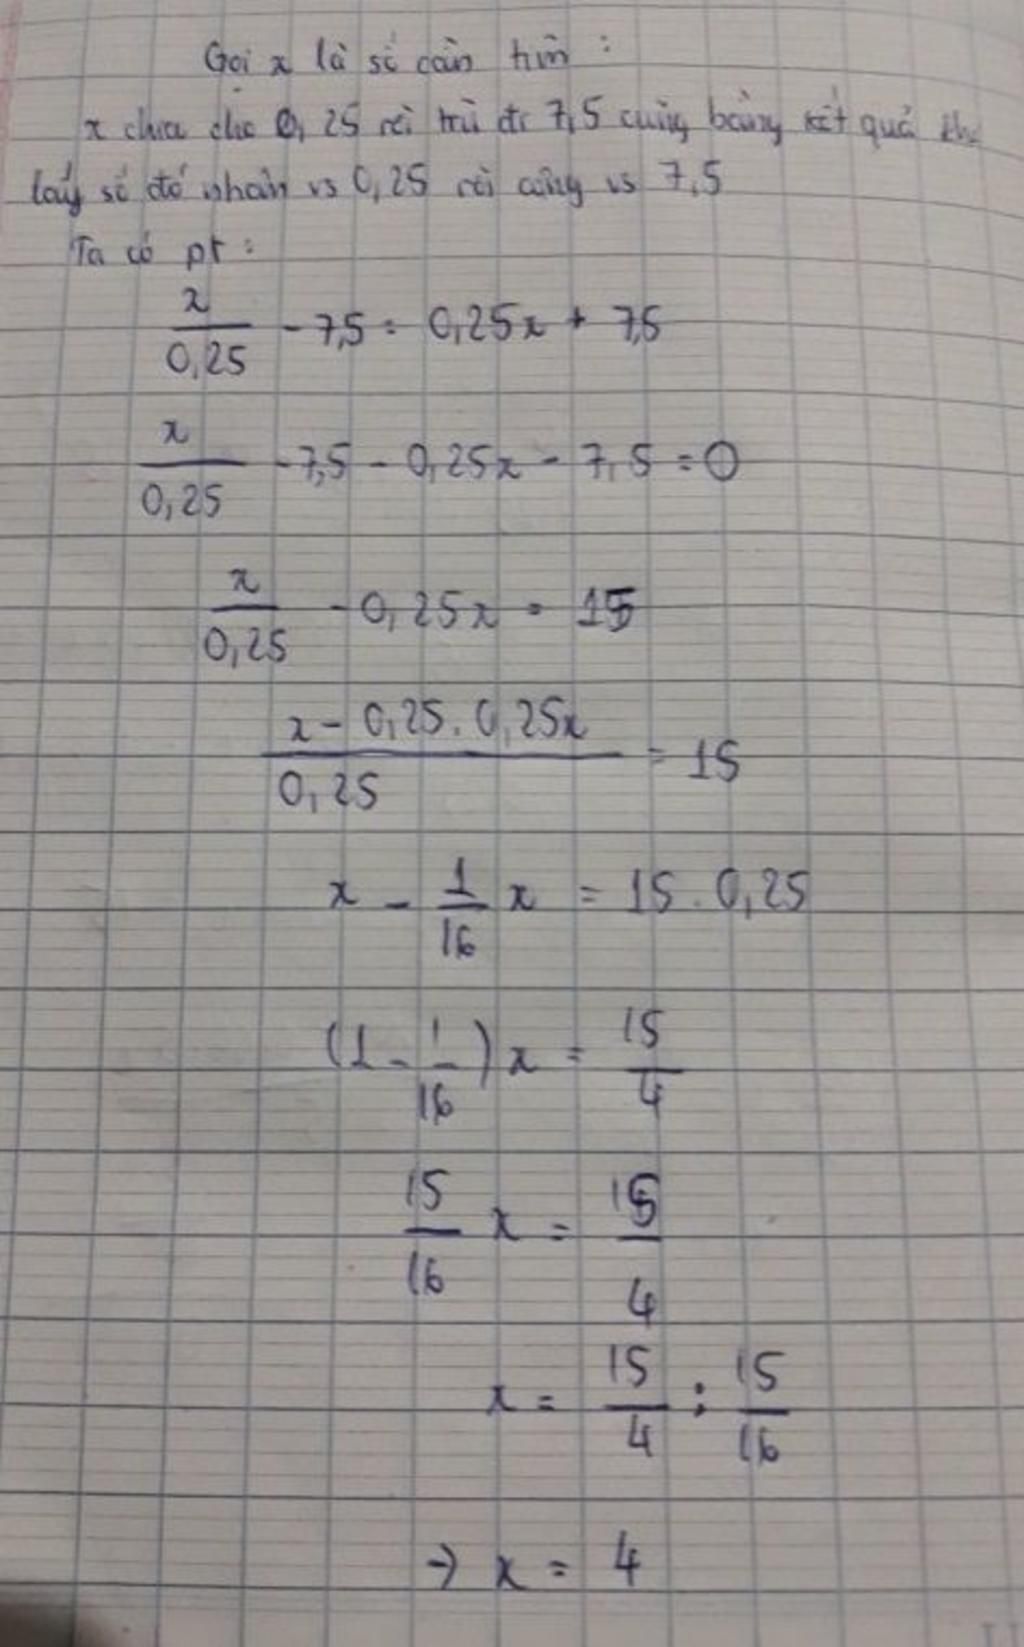 Gọi x là số cần tìm :
x chia cho 0,25 rồi trừ đi 7,5 cũng bằng kết quả khi
lấy số đó nhân vs 0,25 rồi cộng vs 7,5
Ta có pt :
x/0,25 - 7,5 = 0,25x + 7,5
x/0,25 - 7,5 - 0,25x - 7,5 = 0
x/0,25 - 0,25x = 15
(x - 0,25 . 0,25x)/0,25 = 15
x - 1/16 x = 15 . 0,25
(1 - 1/16) x = 15/4
15/16 x = 15/4
x = 15/4 : 15/16
→ x = 4